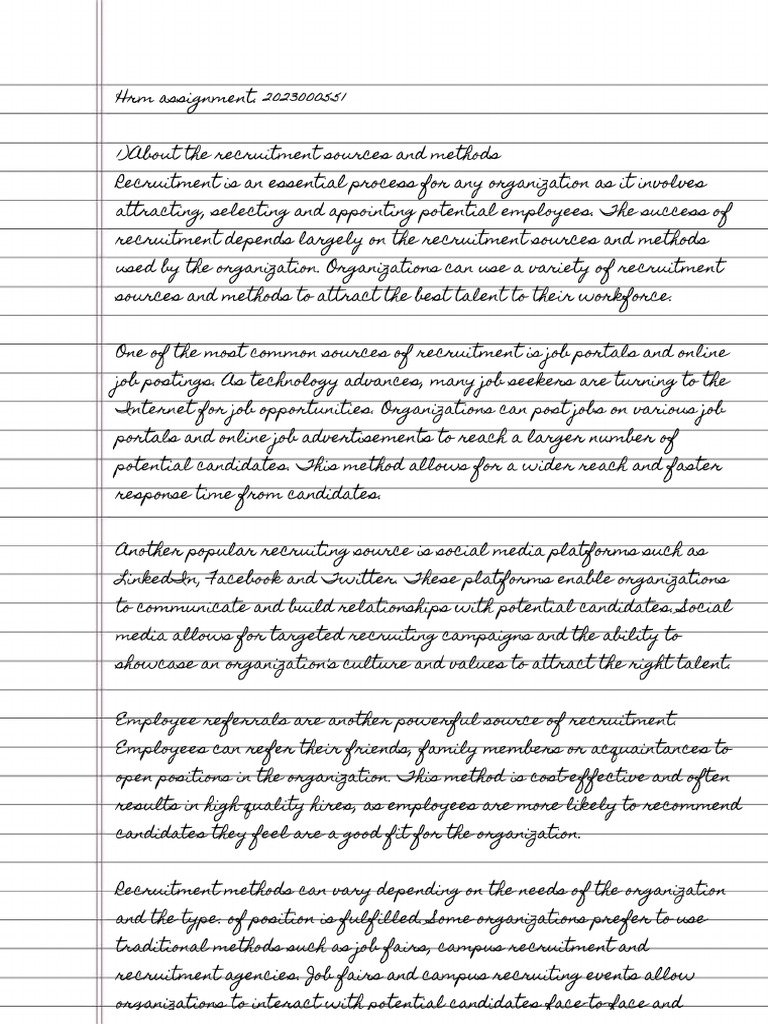 Hrm assignment. 2023000551
1)About the recruitment sources and methods
Recruitment is an essential process for any organization as it involves
attracting, selecting and appointing potential employees. The success of
recruitment depends largely on the recruitment sources and methods
used by the organization. Organizations can use a variety of recruitment
sources and methods to attract the best talent to their workforce.
One of the most common sources of recruitment is job portals and online
job postings. As technology advances, many job seekers are turning to the
Internet for job opportunities. Organizations can post jobs on various job
portals and online job advertisements to reach a larger number of
potential candidates. This method allows for a wider reach and faster
response time from candidates.
Another popular recruiting source is social media platforms such as
LinkedIn, Facebook and Twitter. These platforms enable organizations
to communicate and build relationships with potential candidates.Social
media allows for targeted recruiting campaigns and the ability to
showcase an organization's culture and values to attract the right talent.
Employee referrals are another powerful source of recruitment.
Employees can refer their friends, family members or acquaintances to
open positions in the organization. This method is cost-effective and often
results in high-quality hires, as employees are more likely to recommend
candidates they feel are a good fit for the organization.
Recruitment methods can vary depending on the needs of the organization
and the type. of position is fulfilled.Some organizations prefer to use
traditional methods such as job fairs, campus recruitment and
recruitment agencies. Job fairs and campus recruiting events allow
organizations to interact with potential candidates face-to-face and